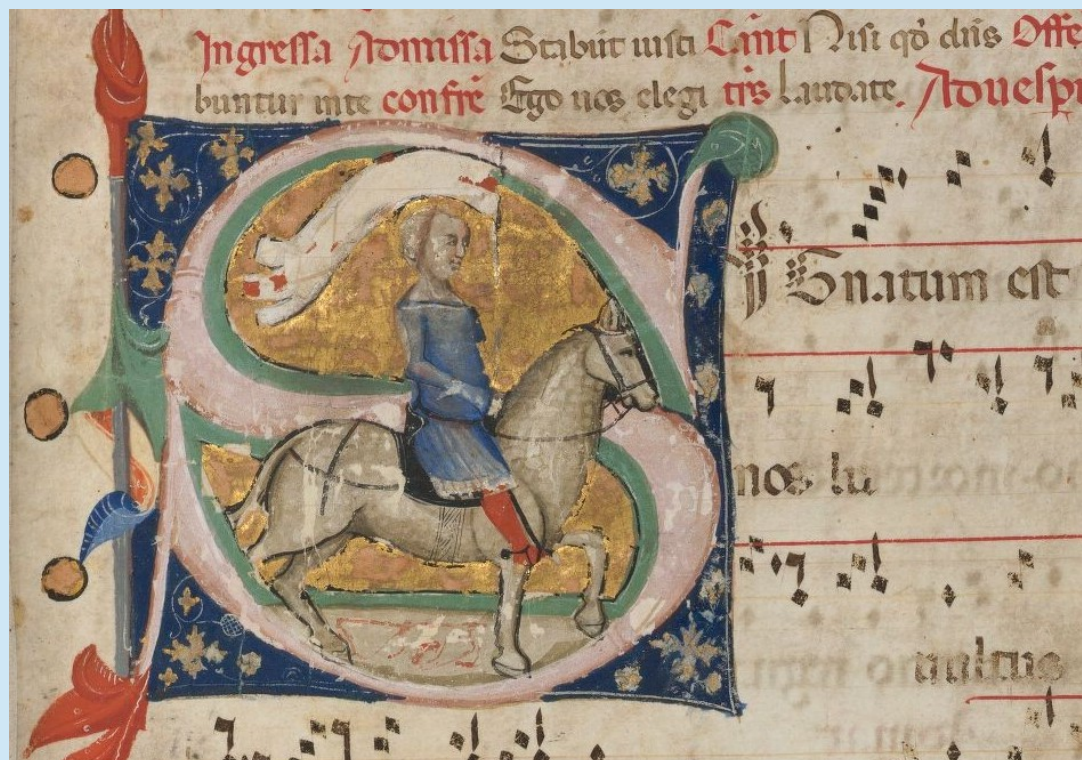 Ingressa Admissa Stabūt iusti Cānt Nisi qð dñs Offe
buntur inte confrē Ego uos elegi trs Laudate. Aduespr
SIGnatum est
nos lu
uultus